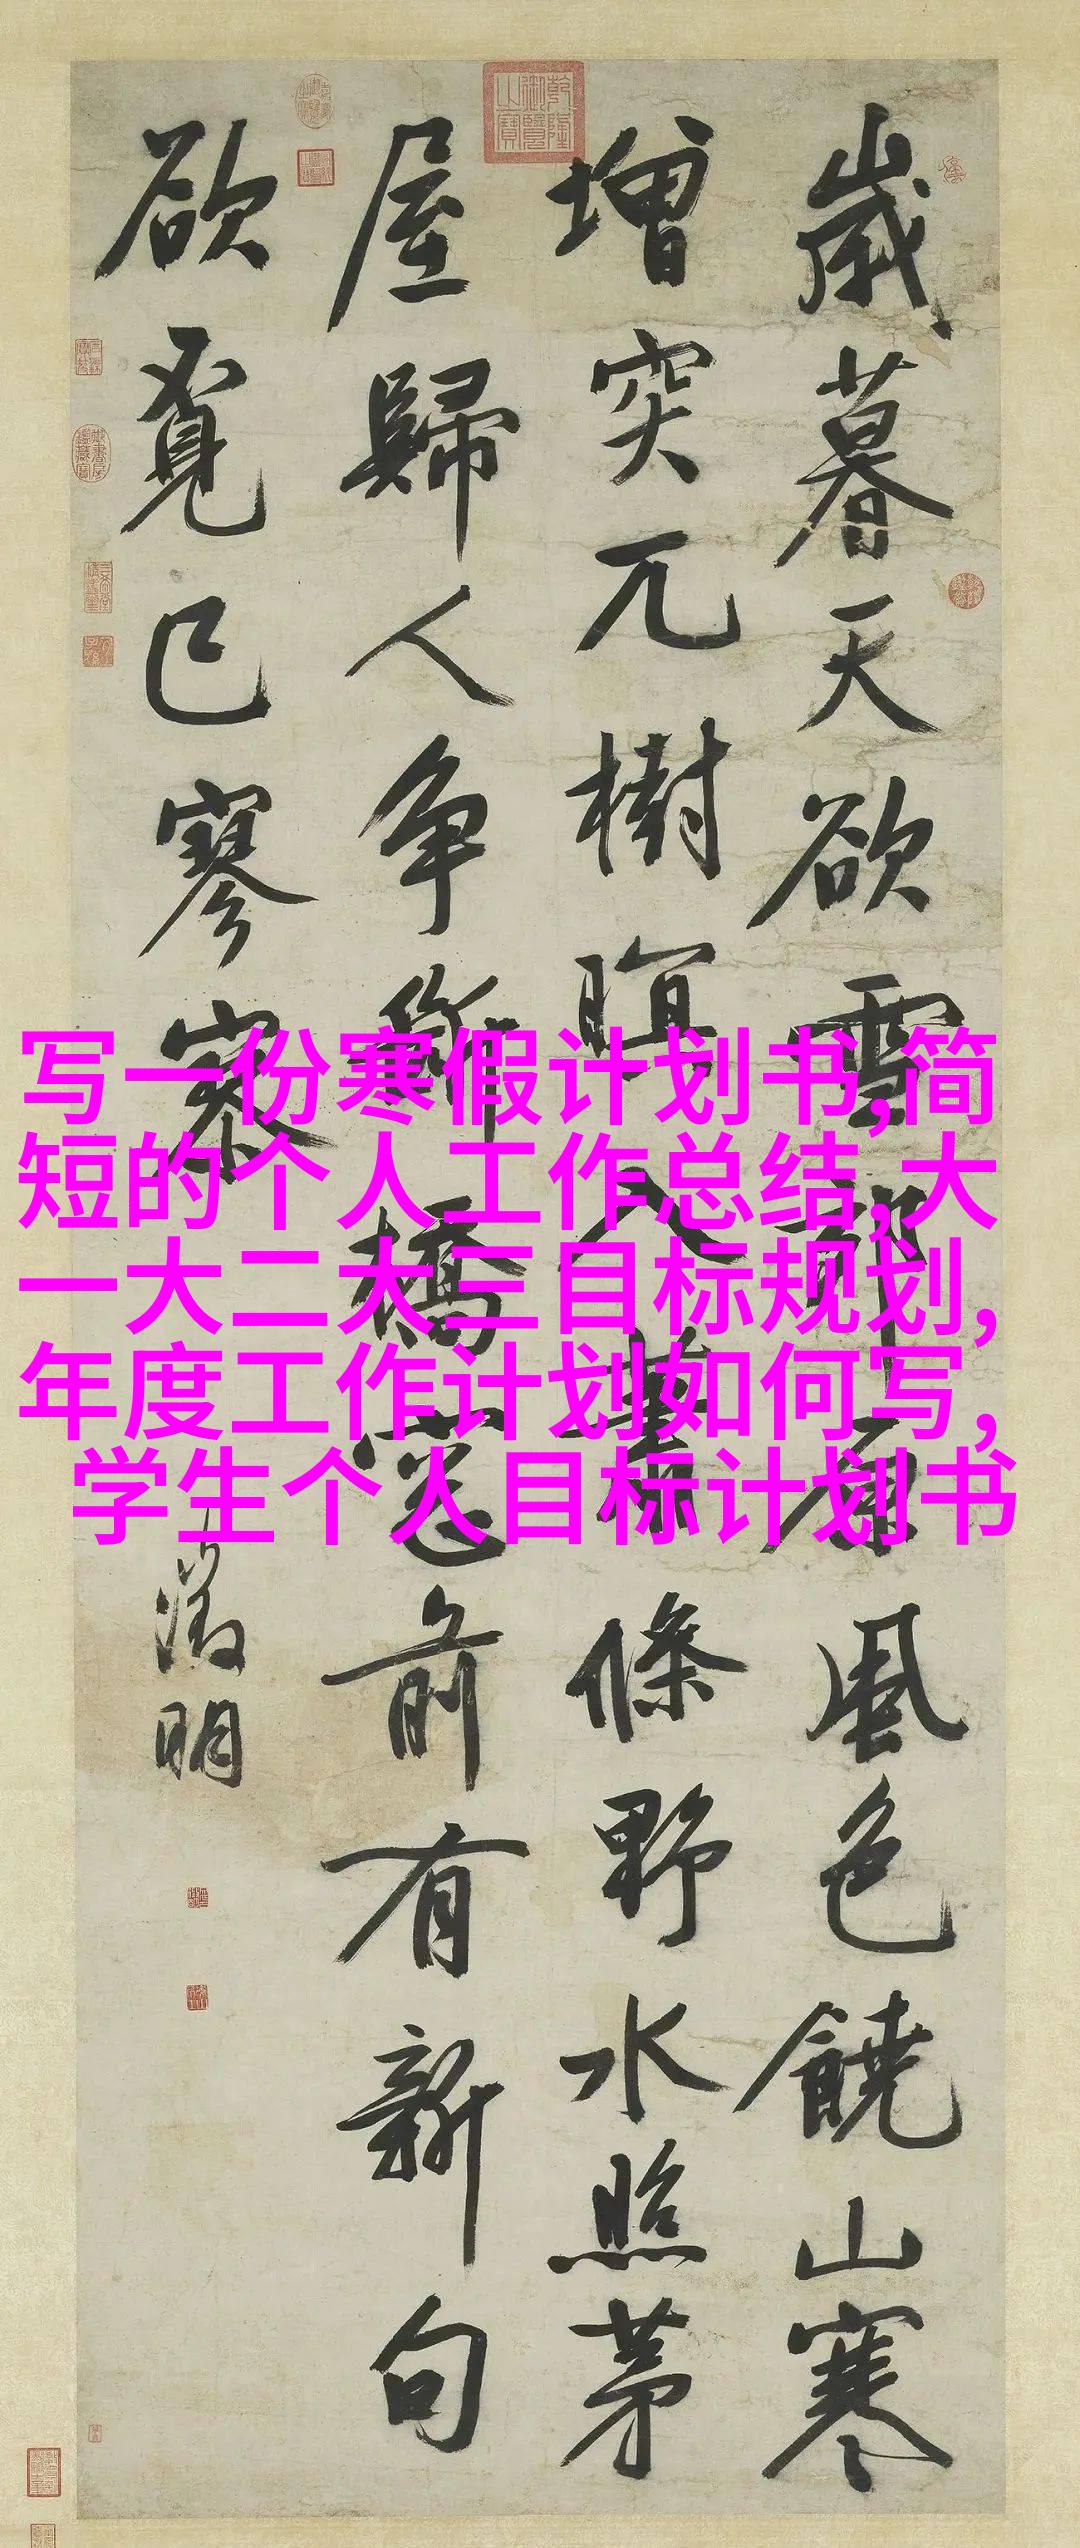 歲暮天欲雪郊原風色饒山寒
增突兀樹暝入蕭條野水照茅
屋歸人爭斷橋窓前有新句
欲覓已寥寥
徵明
乾隆御覽之寶
写一份寒假计划书,简
短的个人工作总结,大
一大二大三目标规划,
年度工作计划如何写,
学生个人目标计划书